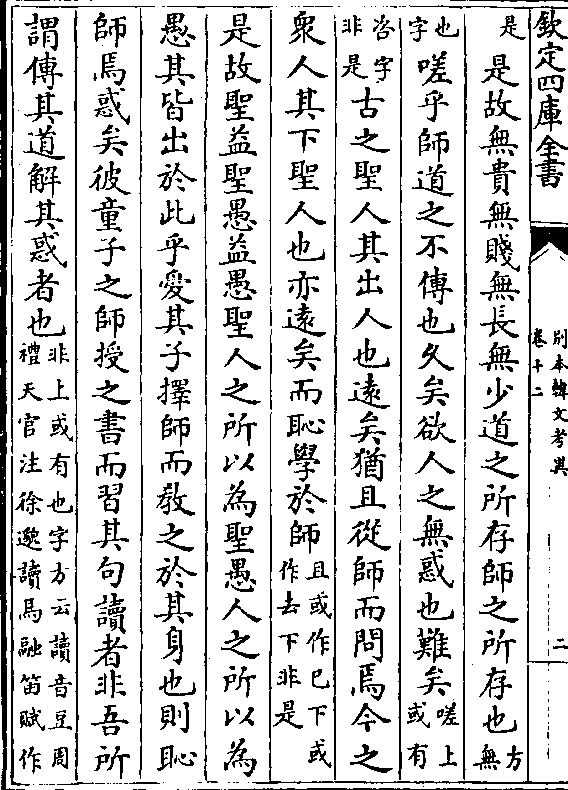 欽定四庫全書
別本韓文考異
卷十二
二
是是故無貴無賤無長無少道之所存師之所存也方無
也字嗟乎師道之不傳也久矣欲人之無惑也難矣嗟上或有
咨字非是古之聖人其出人也遠矣猶且從師而問焉今之
衆人其下聖人也亦遠矣而恥學於師且或作已下或作去下非是
是故聖益聖愚益愚聖人之所以為聖愚人之所以為
愚其皆出於此乎愛其子擇師而教之於其身也則恥
師焉惑矣彼童子之師授之書而習其句讀者非吾所
謂傳其道解其惑者也非上或有也字方云讀音豆周禮天官注徐邈讀馬融笛賦作